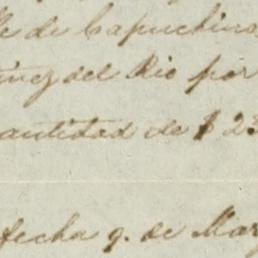 de Capuchinas
inez del Rio por
cantidad de $ 23
fecha 9. de Mar